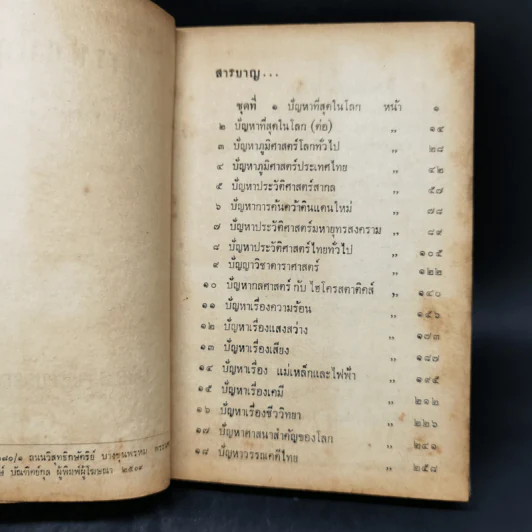 สารบาญ...
ชุดที่ ๑ ปัญหาที่สุดในโลก หน้า ๑
๒ ปัญหาที่สุดในโลก (ต่อ) ,, ๑๕
๓ ปัญหาภูมิศาสตร์โลกทั่วไป ,, ๒๘
๔ ปัญหาภูมิศาสตร์ประเทศไทย ,, ๔๒
๕ ปัญหาประวัติศาสตร์สากล ,, ๕๗
๖ ปัญหาการค้นคว้าดินแดนใหม่ ,, ๗๘
๗ ปัญหาประวัติศาสตร์มหายุทธสงคราม ,, ๘๙
๘ ปัญหาประวัติศาสตร์ไทยทั่วไป ,, ๑๐๕
๙ ปัญญาวิชาดาราศาสตร์ ,, ๑๒๒
๑๐ ปัญหากลศาสตร์ กับ ไฮโดรสตาติคส์ ,, ๑๔๐
๑๑ ปัญหาเรื่องความร้อน ,, ๑๕๖
๑๒ ปัญหาเรื่องแสงสว่าง ,, ๑๗๓
๑๓ ปัญหาเรื่องเสียง ,, ๑๘๗
๑๔ ปัญหาเรื่อง แม่เหล็กและไฟฟ้า ,, ๑๙๕
๑๕ ปัญหาเรื่องเคมี ,, ๒๑๒
๑๖ ปัญหาเรื่องชีววิทยา ,, ๒๒๖
๑๗ ปัญหาศาสนาสำคัญของโลก ,, ๒๔๑
๑๘ ปัญหาวรรณคดีไทย ,, ๒๕๘
ถนนวิสุทธิกษัตริย์ บางขุนพรหม
บัณฑิตย์กุล ผู้พิมพ์ผู้โฆษณา ๒๕๐๓